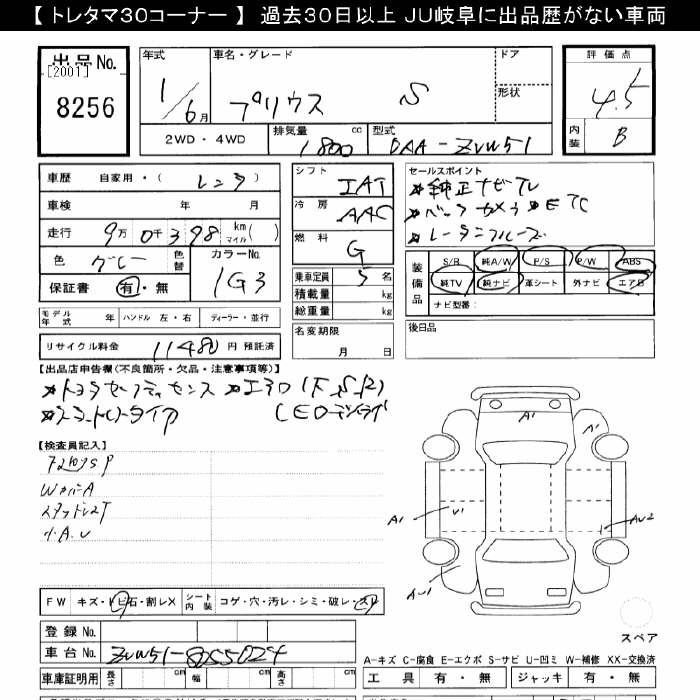 【 トレタマ30コーナー 】 過去30日以上 JU岐阜に出品歴がない車両
出品No.
[2001]
8256
年式
1/6月
車名・グレード
プリウス S
ドア
形状
評価点
4.5
内装 B
2WD・4WD
排気量 1800 cc
型式 DAA-ZVW51
車歴 自家用・( レンタ )
車検 年 月
走行 9万0千398 km マイル ( )
色 グレー 色替
カラーNo. 1G3
保証書 有・無
シフト IAT
冷房 AAC
燃料 G
乗車定員 5 名
積載量 kg
総重量 kg
名変期限
月 日
セールスポイント
*純正ナビTV
*バックカメラ *ETC
*レーダークルーズ
装備品
S/R 純A/W P/S P/W ABS
純TV 純ナビ 革シート 外ナビ エアB
ナビ型番:
後日品
モデル年式 年 ハンドル 左・右 ディーラー・並行
リサイクル料金 11480 円 預託済
【出品店申告欄(不良箇所・欠品・注意事項等)】
*トヨタセーフティセンス *エアロ(F,S,R)
*スマートキー
【検査員記入】
WカバーA
スタッドレスT
小A.U
A1
A1
A1
U1
AU2
AU1
FW キズ・トビ石・割レX シート内装 コゲ・穴・汚レ・シミ・破レ・スレ
登録No.
車台No. ZVW51-8055024
スペア
A-キズ C-腐食 E-エクボ S-サビ U-凹ミ W-補修 XX-交換済
車庫証明用 長さ cm 幅 cm 高さ cm
工具 有・無 ジャッキ 有・無